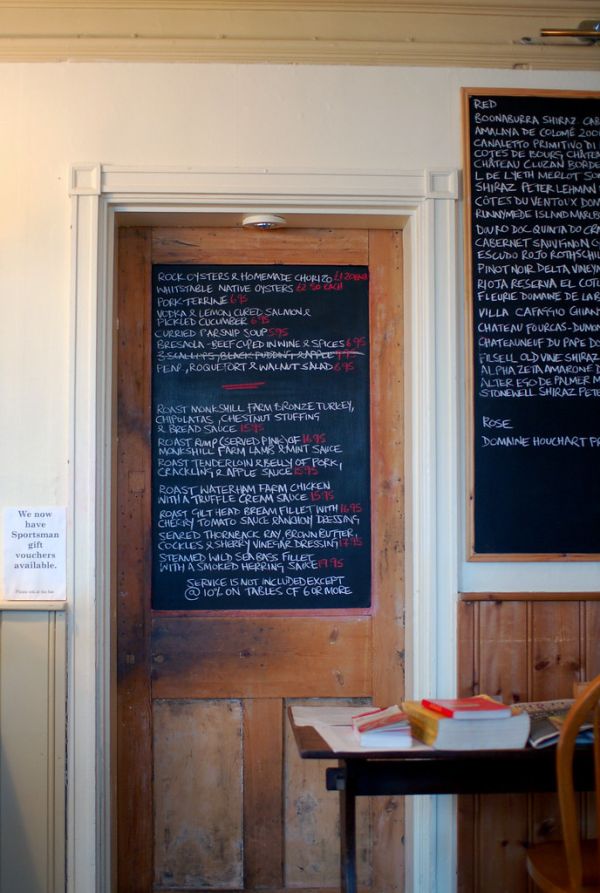 ROCK OYSTERS & HOMEMADE CHORIZO £1.20EACH
WHITSTABLE NATIVE OYSTERS £2.50 EACH
PORK TERRINE 6.95
VODKA & LEMON CURED SALMON &
PICKLED CUCUMBER 6.95
CURRIED PARSNIP SOUP 5.95
BRESAOLA - BEEF CUPED IN WINE & SPICES 6.95
3 SCALLOPS, BLACK PUDDING & APPLE 7.95
PEAR, ROQUEFORT & WALNUT SALAD 6.95
ROAST MONKSHILL FARM BRONZE TURKEY,
CHIPOLATAS, CHESTNUT STUFFING
& BREAD SAUCE 15.95
ROAST RUMP (SERVED PINK) OF 16.95
MONKSHILL FARM LAMB & MINT SAUCE
ROAST TENDERLOIN & BELLY OF PORK,
CRACKLING & APPLE SAUCE 15.95
ROAST WATERHAM FARM CHICKEN
WITH A TRUFFLE CREAM SAUCE 15.95
ROAST GILT HEAD BREAM FILLET WITH 16.95
CHERRY TOMATO SAUCE RANCHON DRESSING
SEARED THORNBACK RAY, BROWN BUTTER,
COCKLES & SHERRY VINEGAR DRESSING 17.95
STEAMED WILD SEA BASS FILLET
WITH A SMOKED HERRING SAUCE 19.95
SERVICE IS NOT INCLUDED EXCEPT
@ 10% ON TABLES OF 6 OR MORE
RED
BOONABURRA SHIRAZ. CAB
AMALAYA DE COLOMÉ 200
CANALETTO PRIMITIVO DI
COTES DE BOURG CHÂTEA
CHÂTEAU CLUZAN BORDE
L DE LYETH MERLOT SON
SHIRAZ PETER LEHMAN
CÔTES DU VENTOUX DOM
RUNNYMEDE ISLAND MARLB
DOURO DOC QUINTA DO CR
CABERNET SAUVIGNON G
ESCUDO ROJO ROTHSCHIL
PINOT NOIR DELTA VINEY
RIOJA RESERVA EL COTO
FLEURIE DOMAINE DE LA B
VILLA CAFAGGIO CHIAN
CHATEAU FOURCAS-DUMO
CHATEAUNEUF DU PAPE DO
FILSELL OLD VINE SHIRAZ
ALPHA ZETA AMARONE D
ALTER EGO DE PALMER M
STONEWELL SHIRAZ PETE
ROSE
DOMAINE HOUCHART PR
We now
have
Sportsman
gift
vouchers
available.
Please ask at the bar